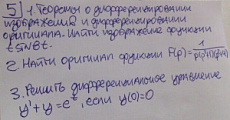 5 1. Теоремы о дифференцировании
изображения и дифференцировании
оригинала. Найти изображение функции
t sin8t.
2. Найти оригинал функции F(p)=
3. Решить дифференциальное уравнение
y'+y=e^t, если y(0)=0